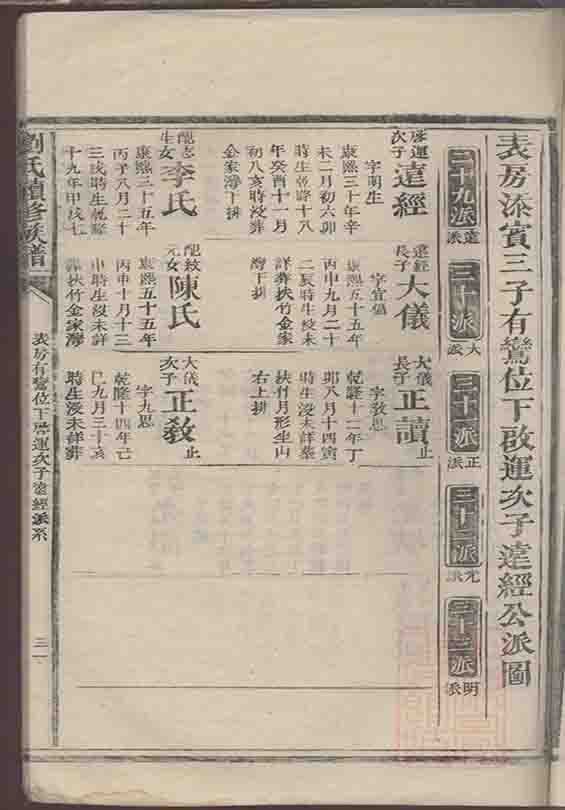 表房添賓三子有鸞位下啟運次子達經公派圖
三十九派 達派
三十派 大派
三十一派 正派
三十二派 光派
三十三派 明派
啟運次子 達經
字明生
康熙三十年辛
未二月初六卯
時生乾隆十八
年癸酉十一月
初八亥時沒葬
金家灣干排
配志生女 李氏
康熙三十五年
丙子八月二十
三戌時生乾隆
十九年甲戌七
達經長子 大儀
字宜儒
康熙五十五年
丙申九月二十
二辰時生沒未
詳葬扶竹金家
灣干排
配紋元女 陳氏
康熙五十五年
丙申十月十三
申時生沒未詳
葬扶竹金家灣
大儀長子 正讀 止
字敦思
乾隆十二年丁
卯八月十四寅
時生沒未詳葬
扶竹月形坐山
右上排
大儀次子 正教 止
字九思
乾隆十四年己
巳九月三十亥
時生沒未詳葬
劉氏續修族譜
表房有鸞位下啟運次子達經派系
三一